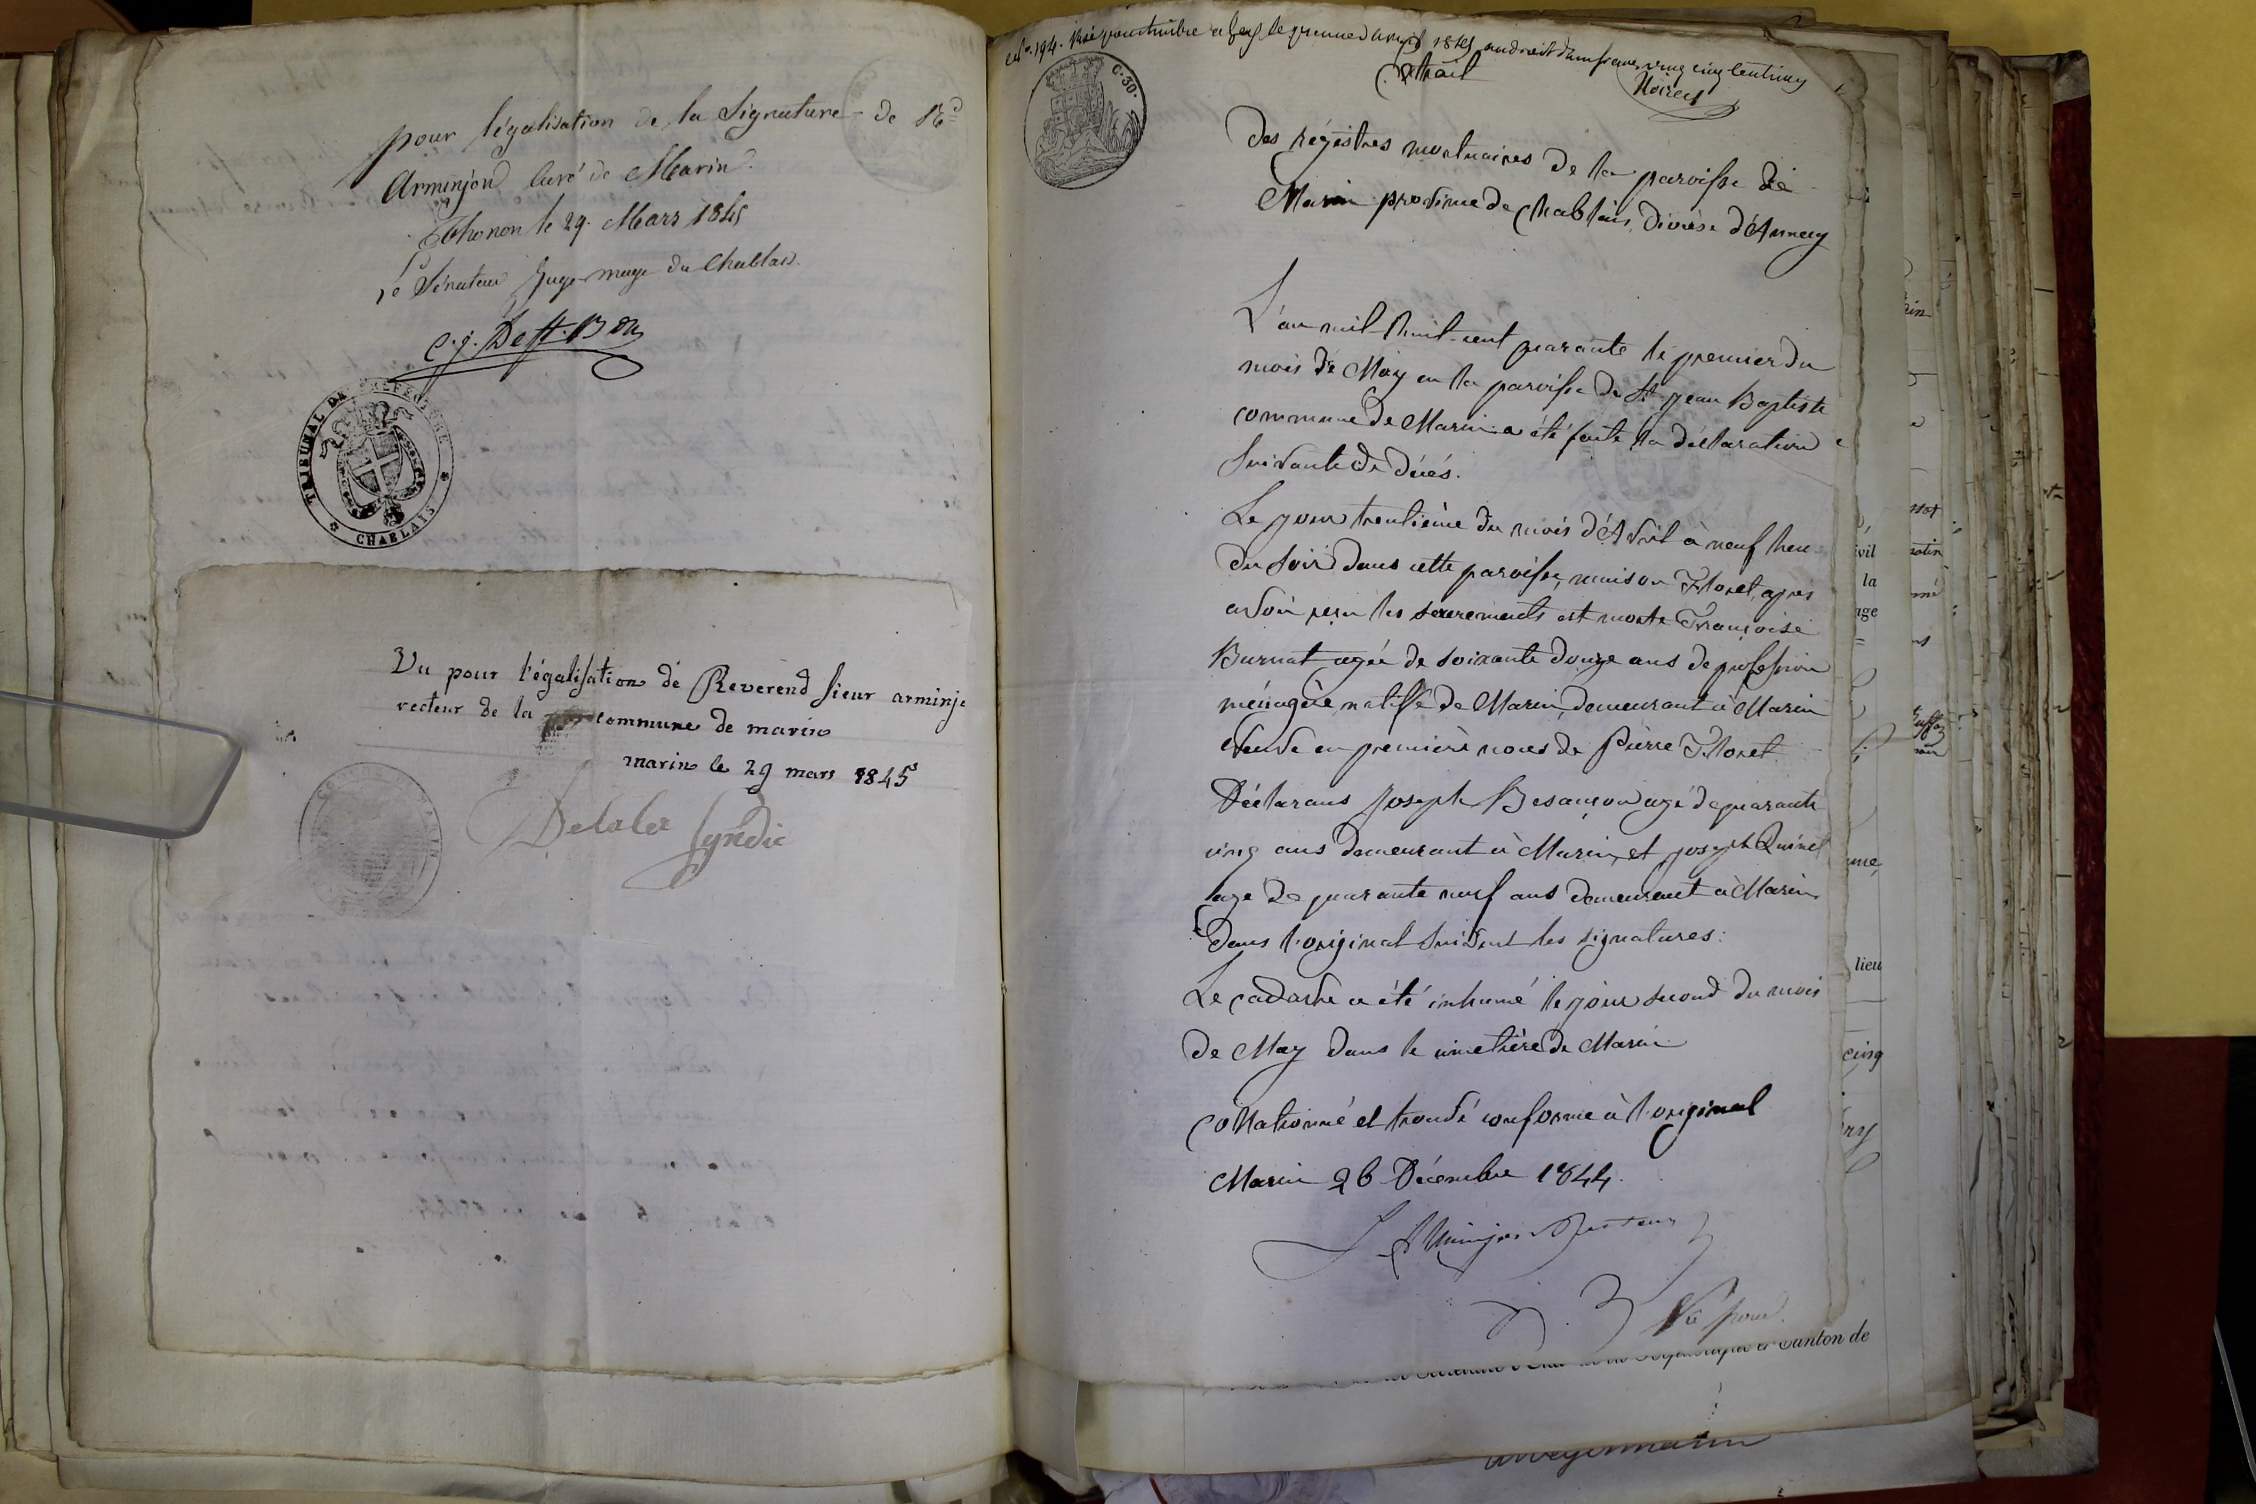 pour légalisation de la Signature de Rd
Arminjon Curé de Marin.
Thonon le 29. Mars 1845
le Sénateur Juge-mage du Chablais.
TRIBUNAL DE PREFECTURE
CHABLAIS
Vu pour l'égalisation de Reverend sieur arminj
recteur de la commune de marin
marin le 29 mars 1845
Delalex Syndic
194. Visé pour timbre le premier 1845 au droit d'un franc vingt cinq centimes
Extrait
C. 30.
Des régistres mortuaires de la paroisse de
Marin province de Chablais, Diocèse d'Annecy
L'an mil-huit-cent quarante le premier du
mois de May en la paroisse de St Jean Baptiste
commune de Marin a été faite la déclaration
suivante de décés.
Le jour trentième du mois d'Avril à neuf heu
du soir dans cette paroisse, maison Floret, après
avoir reçu les sacrements est morte Françoise
Burnat agée de soixante douze ans de profession
ménagère, native de Marin, demeurant à Marin
veuve en premières noces de Pierre Floret.
Déclarans Joseph Besançon agé de quarante
cinq ans demeurant à Marin, et Joseph
agé de quarante neuf ans demeurant à Marin
Dans l'original suivent les signatures:
Le cadavre a été inhumé le jour second du mois
de May dans le cimetière de Marin
Collationné et trouvé conforme à l'original
Marin 26 Décembre 1844.
Arminjon Recteur
Vu pour
ivil
la
age
lieu
cinq
Canton de